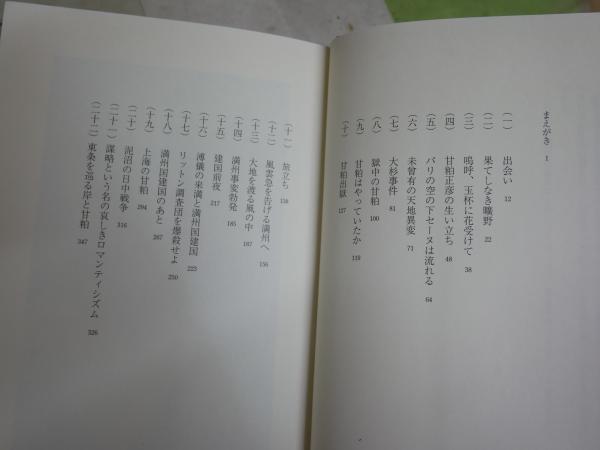 まえがき 1
（一） 出会い 12
（二） 果てしなき曠野 22
（三） 嗚呼、玉杯に花受けて 38
（四） 甘粕正彦の生い立ち 48
（五） パリの空の下セーヌは流れる 64
（六） 未曾有の天地異変 71
（七） 大杉事件 81
（八） 獄中の甘粕 100
（九） 甘粕はやっていたか 119
（十） 甘粕出獄 127
（十一） 旅立ち 138
（十二） 風雲急を告げる満州へ 156
（十三） 大地を渡る風の中 167
（十四） 満州事変勃発 185
（十五） 建国前夜 217
（十六） 溥儀の来満と満州国建国 223
（十七） リットン調査団を爆殺せよ 250
（十八） 満州国建国のあと 267
（十九） 上海の甘粕 294
（二十） 泥沼の日中戦争 316
（二十一） 謀略という名の哀しきロマンティシズム 326
（二十二） 東条を巡る岸と甘粕 347